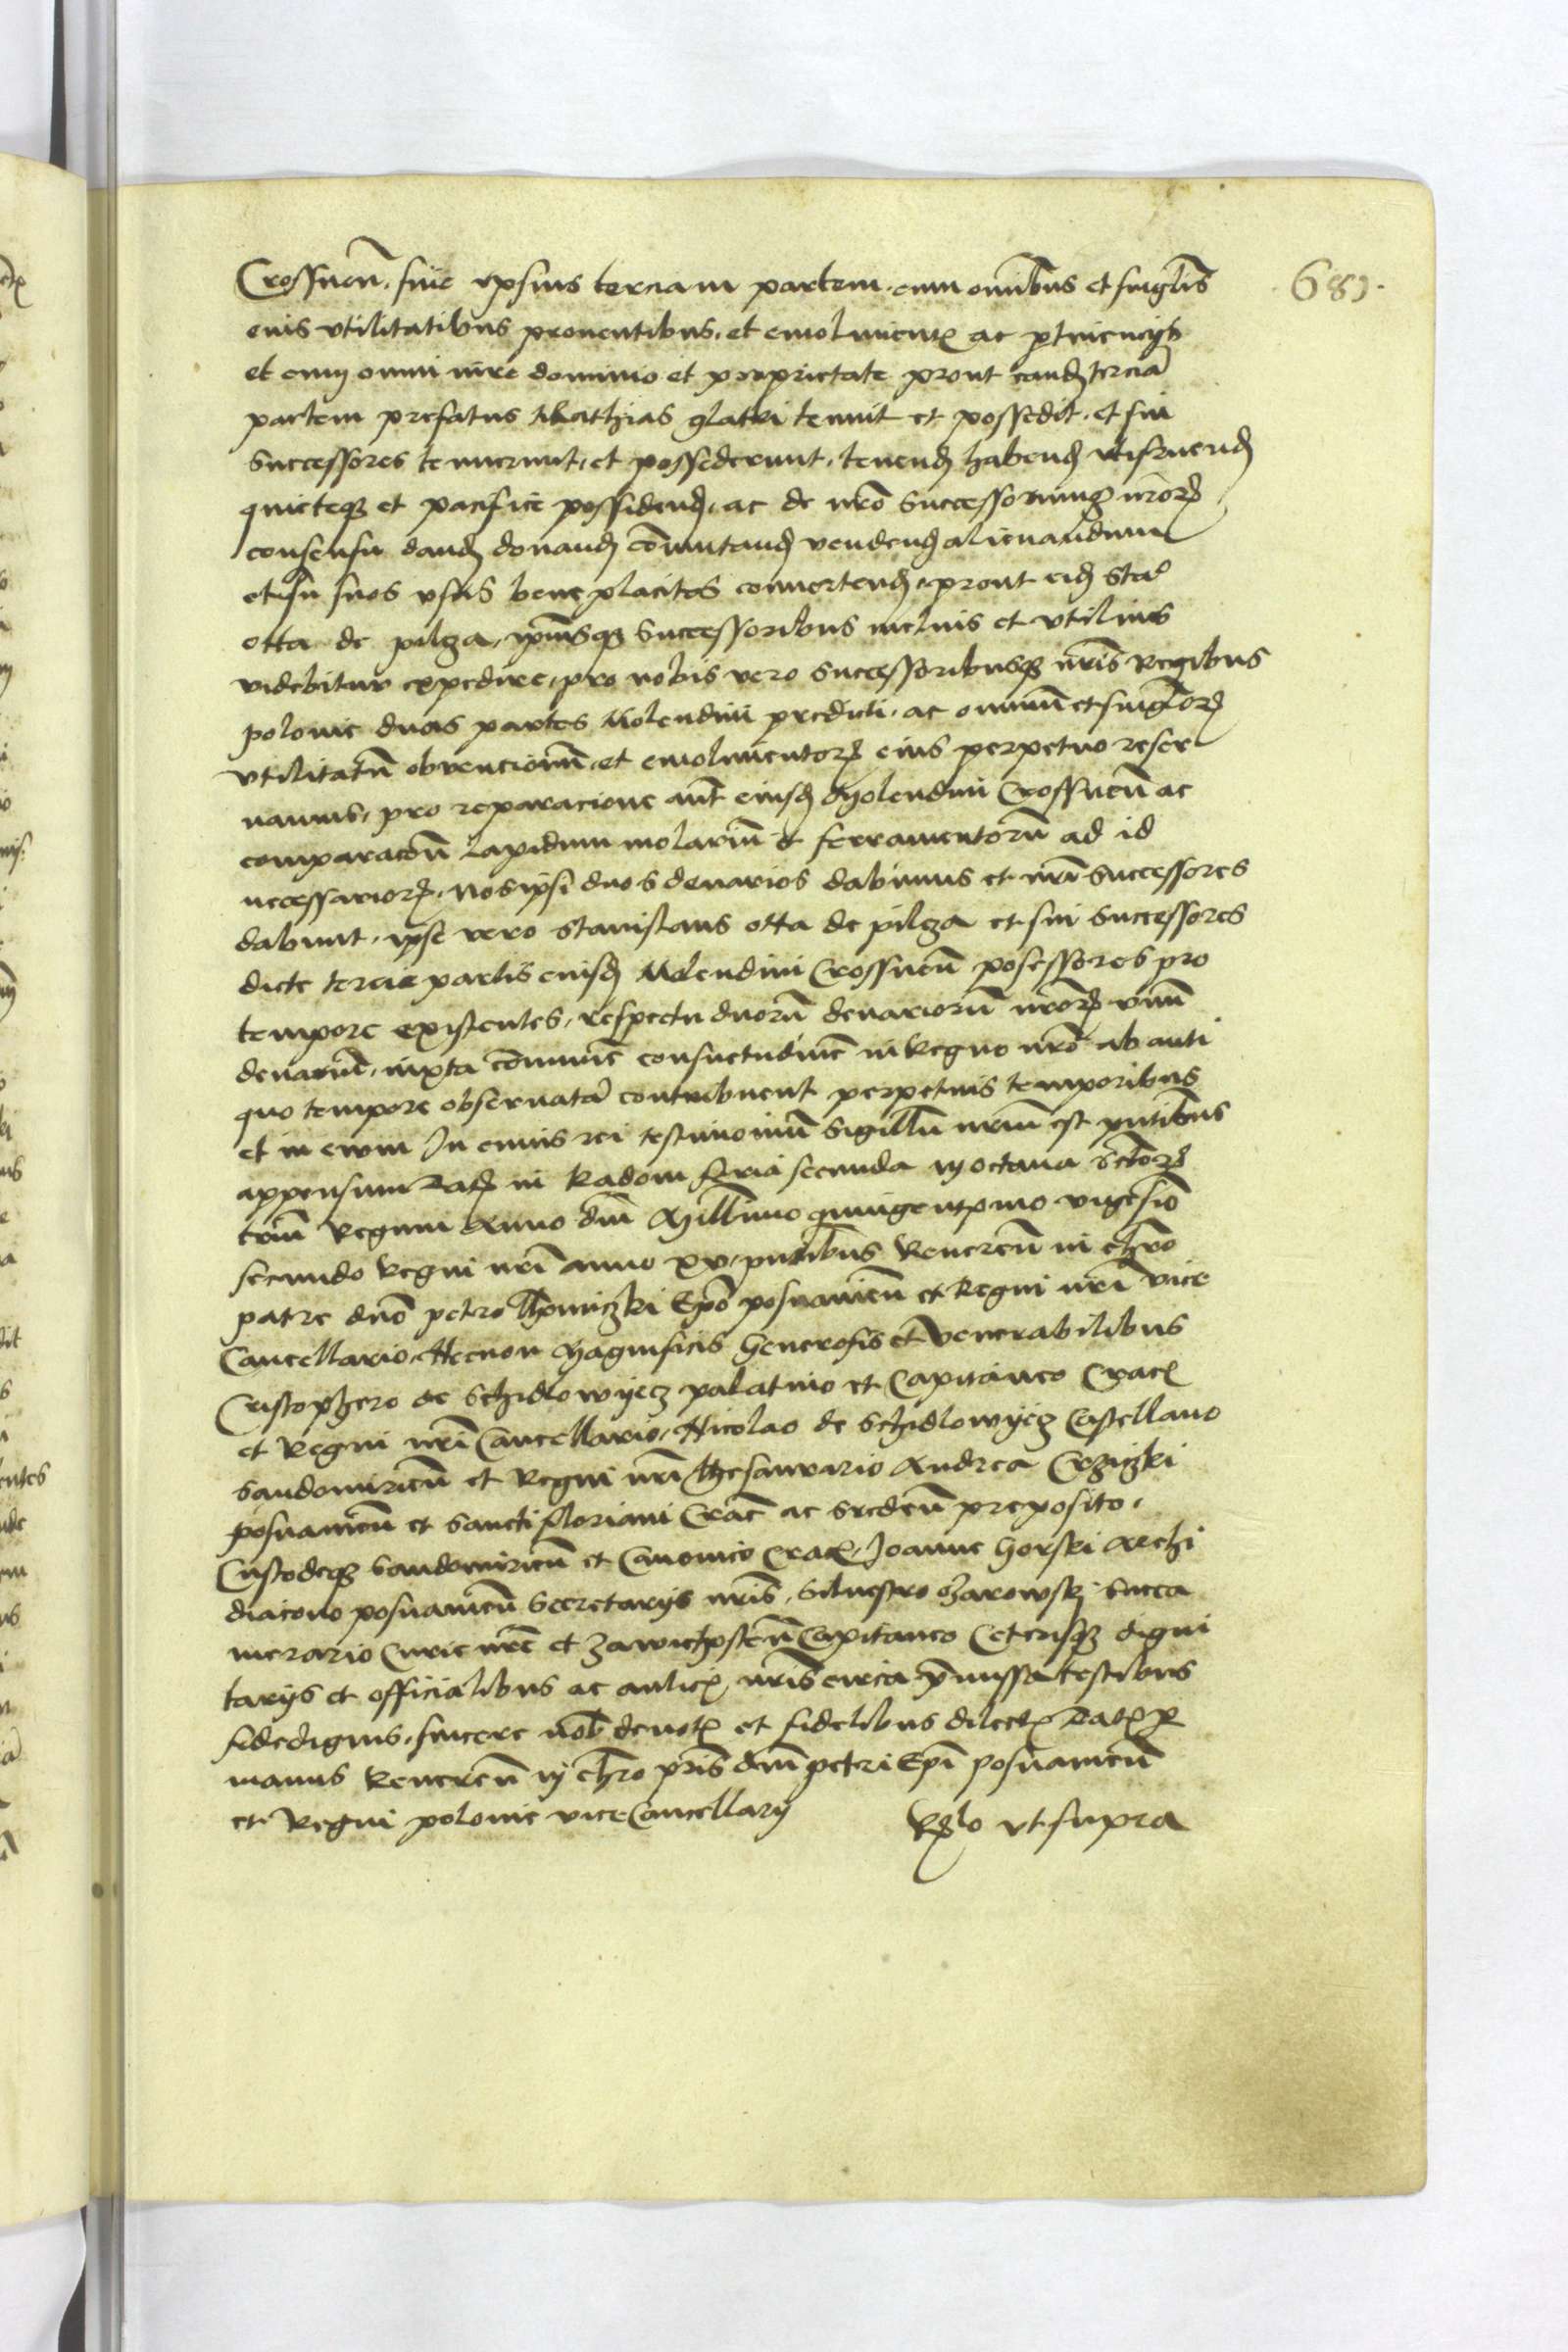 689.
Crossneñ, siue ipsius terciam partem, cum om̃ibus et singl̃is
eius vtilitatibus prouentibus, et emolumentꝭ ac ꝑtinencijs
et cum omni iure dominio et proprietate prout eandẽ terciã
partem prefatus Mathias glatki tenuit et possedit, et sui
successores tenuerunt, et possederunt, tenendẽ habendẽ vtifruendẽ
quieteqꝫ et pacifice possidendẽ, ac de nr̃o successorumqꝫ nr̃oꝝ
consensu dandẽ donandẽ com̃utandẽ vendendẽ alienandum
et in suos vsus bene placitos conuertendẽ, prout eidẽ Stañ
otta de pilcza, ipiusqꝫ successoribus melius et vtilius
videbitur expedire, pro nobis vero successoribusqꝫ nr̃is Regibus
polonie duas partes Molendini predicti, ac omniũ et singl̃oꝝ
vtilitatũ obuencionũ, et emolumentoꝝ eius perpetuo reser
uamus, pro reparacione aũt eiusdẽ Molendini Crossneñ ac
comparacõñ lapidum molariũ et ferramentorũ ad id
necessarioꝝ, nos ipsi duos denarios dabimus et nr̃i successores
dabunt, ipse vero Stanislaus otta de pilcza et sui successores
dicte tercie partis eiusdẽ Molendini Crossneñ possessores pro
tempore existentes, respectu duorũ denariorũ nr̃oꝝ vnũ
denariũ, iuxta com̃unẽ consuetudinẽ in Regno nr̃o ab anti
quo tempore obseruatã contribuent perpetuis temporibus
et in ewm In cuius rei testimoniũ sigillũ nr̃um est pñtibus
appensum Datẽ in Radom feria secunda in octaua sctõꝝ
triũ Regum Anno dñi Millĩmo quingentesimo vigesiõ
secundo Regni nr̃i anno xv, pñtibus Reuereñ in chr̃o
patre dño petro Thomiczki Ep̃o posnanieñ et Regni nr̃i vice
Cancellario, Necnon Magnificis Generosis et venerabilibus
Cristophero de Schidlowyecz palatino et Capitaneo Cracꝭ
et Regni nr̃i Cancellario, Nicolao de Schidlowyecz Castellano
Sandomirieñ et Regni nr̃i thesaurario Andrea Crziczki
posnanieñ et sancti floriani Crac̃ ac Srcdeñ preposito,
Custodeqꝫ Sandomirieñ et Canonico Cracꝭ, Joanne Gorski Archi
diacono posnanieñ Secretarijs nr̃is, Siluestro Ozarowskj Succa
merario Curie nr̃e et Zawichosteñ Capitaneo Ceterisqꝫ digni
tarijs et officialibus ac aulicꝭ nr̃is circa p̃missa testibus
fidedignis, sincere nob̃ deuotꝭ et fidelibus dilectꝭ Datꝭ ꝑ
manus Reuereñ in chr̃o pr̃is dñi petri Ep̃i posnanieñ
et Regni polonie vice Cancellarij
Rc̃lo vt supra